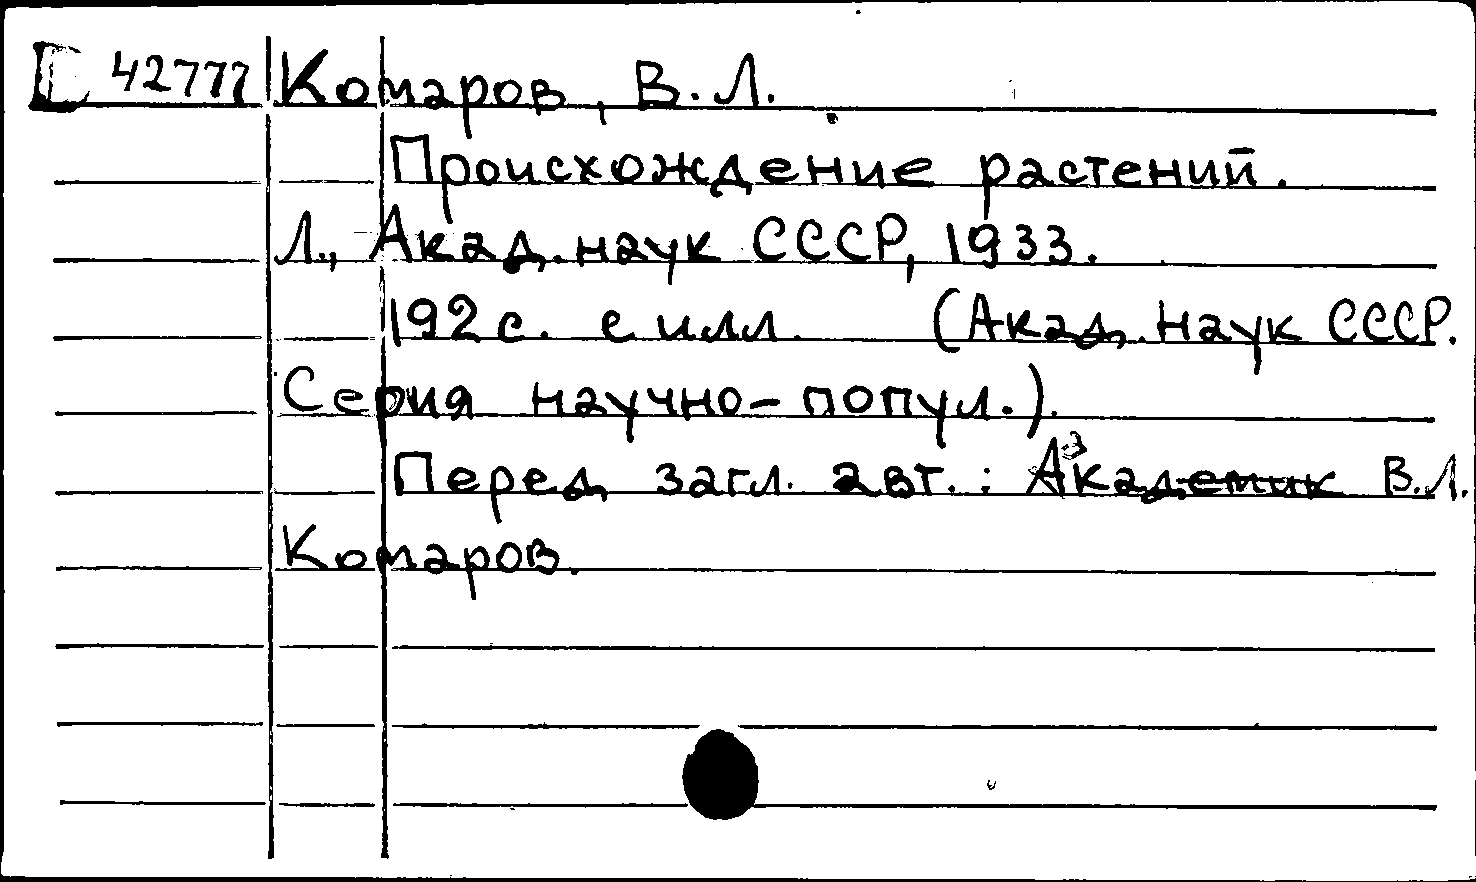 42777 Комаров, В.Л.
Происхождение растений.
Л., Акад. наук СССР, 1933.
192 с. с илл. (Акад. наук СССР.
Серия научно-попул.).
Перед загл. авт.: Академик В.Л.
Комаров.